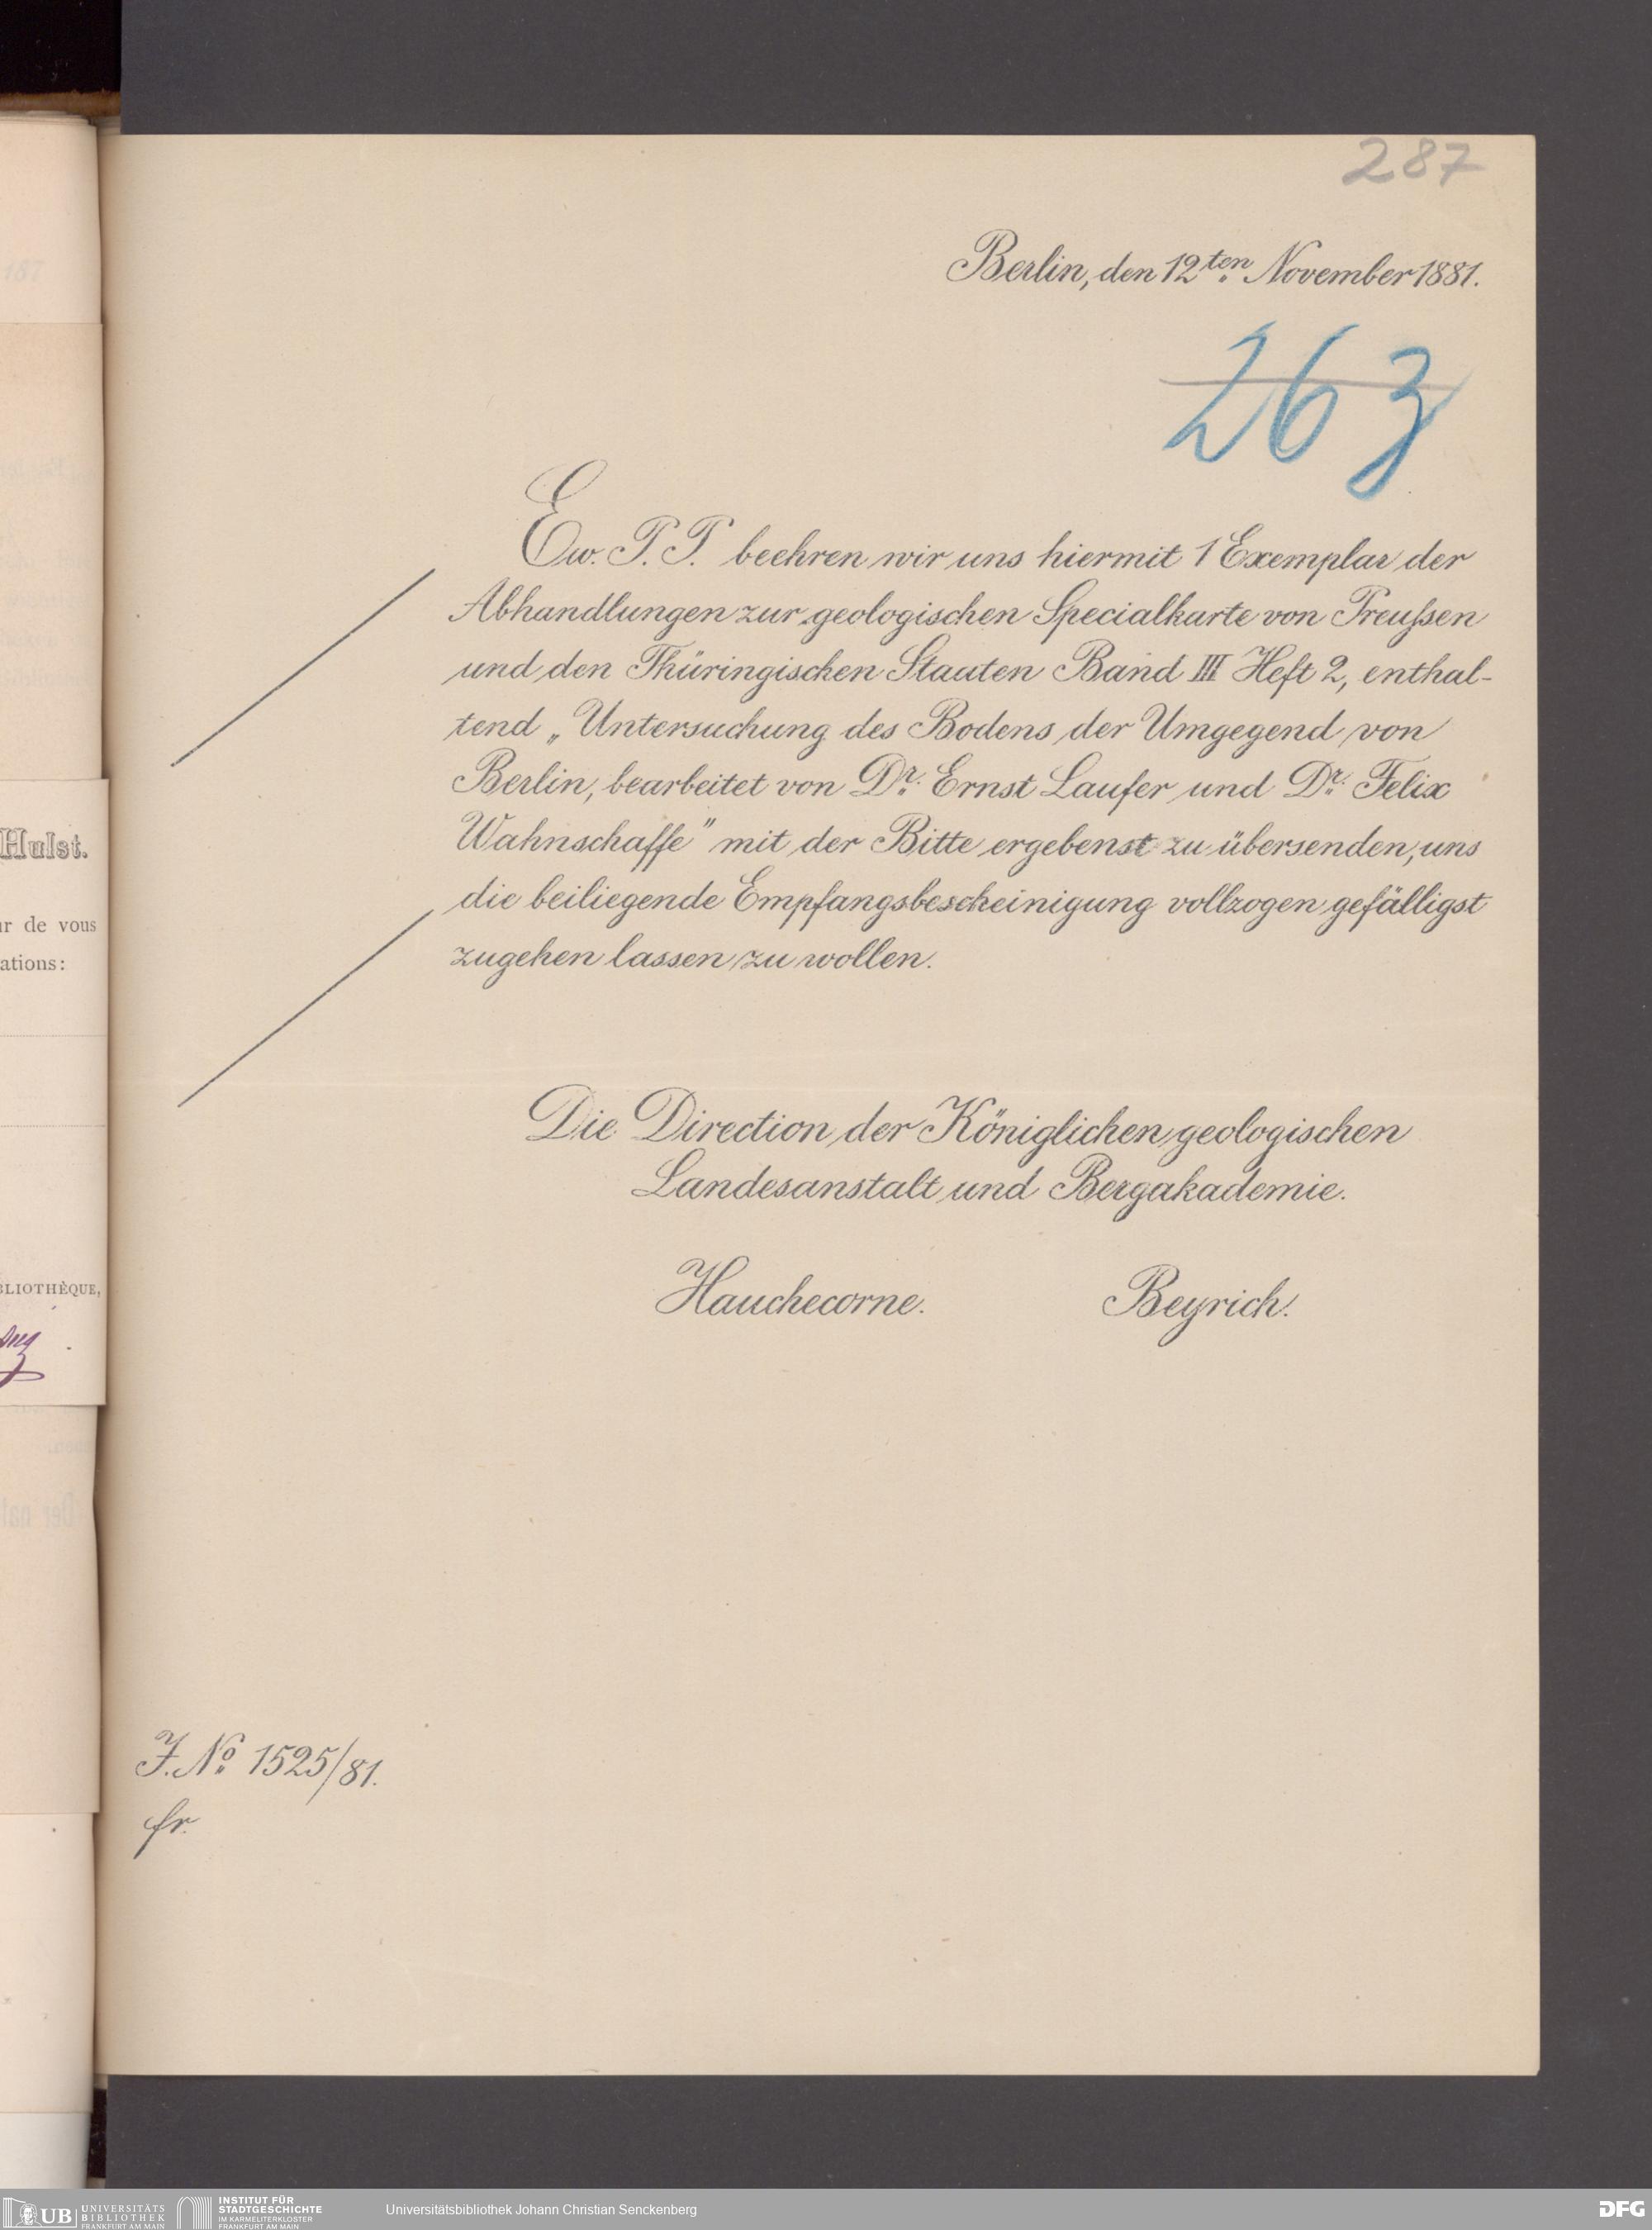 287
Berlin, den 12ten November 1881.
263
Ew. P. P. beehren wir uns hiermit 1 Exemplar der
Abhandlungen zur geologischen Specialkarte von Preußen
und den Thüringischen Staaten Band III Heft 2, enthal-
tend „Untersuchung des Bodens der Umgegend von
Berlin, bearbeitet von Dr. Ernst Laufer und Dr. Felix
Wahnschaffe" mit der Bitte ergebenst zu übersenden, uns
die beiliegende Empfangsbescheinigung vollzogen gefälligst
zugehen lassen zu wollen.
Die Direction der Königlichen geologischen
Landesanstalt und Bergakademie.
Hauchecorne. Beyrich.
J. No 1525/81.
fr.
Hulst.
de vous
ations:
BLIOTHÈQUE,
UB UNIVERSITÄTS
BIBLIOTHEK
FRANKFURT AM MAIN
INSTITUT FÜR
STADTGESCHICHTE
IM KARMELITERKLOSTER
FRANKFURT AM MAIN
Universitätsbibliothek Johann Christian Senckenberg
DFG